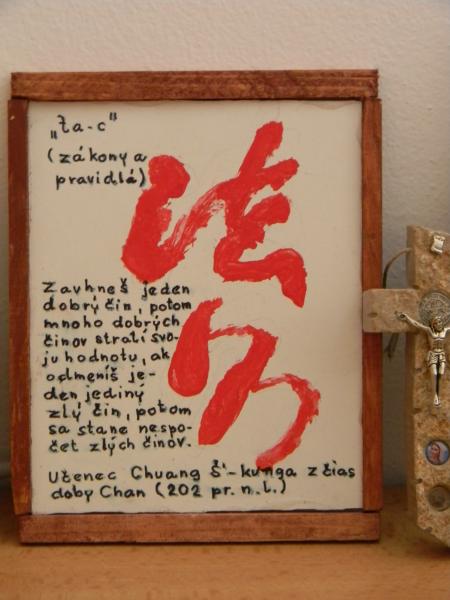 „ťa-c“
(zákony a
pravidlá)
Zavhneš jeden
dobrý čin, potom
mnoho dobrých
činov stratí svo-
ju hodnotu, ak
odmeníš je-
den, jediný
zlý čin, potom
sa stane nespo-
čet zlých činov.
Učenec Chuang Š'-kunga z čias
doby Chan (202 pr. n. l.)